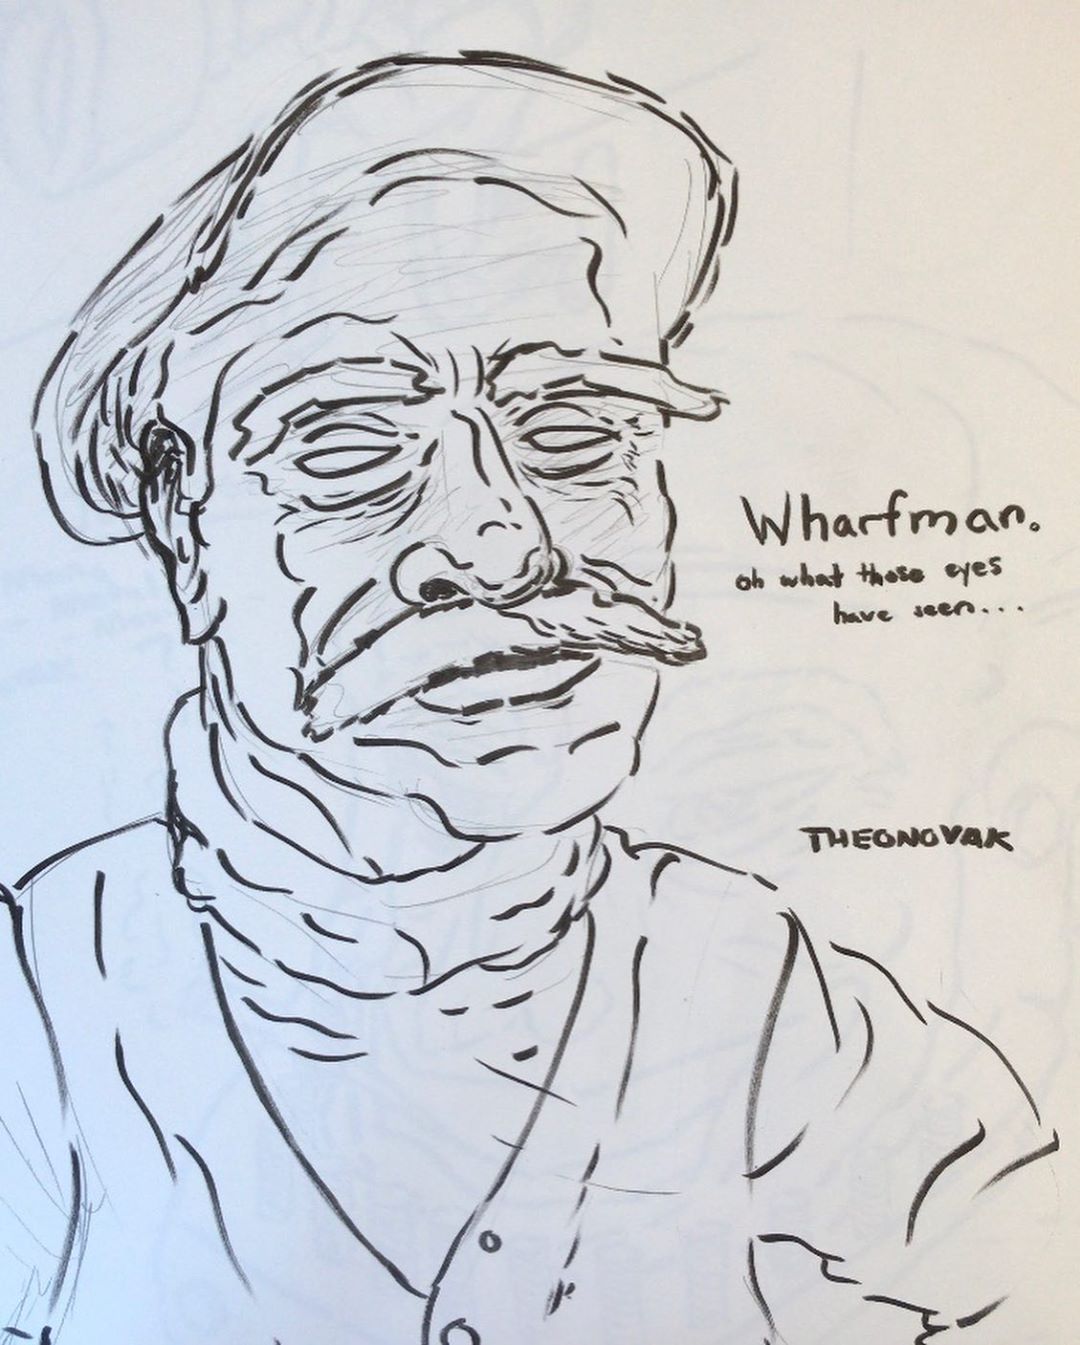 Wharfman.
oh what those eyes
have seen...
THEONOVAK